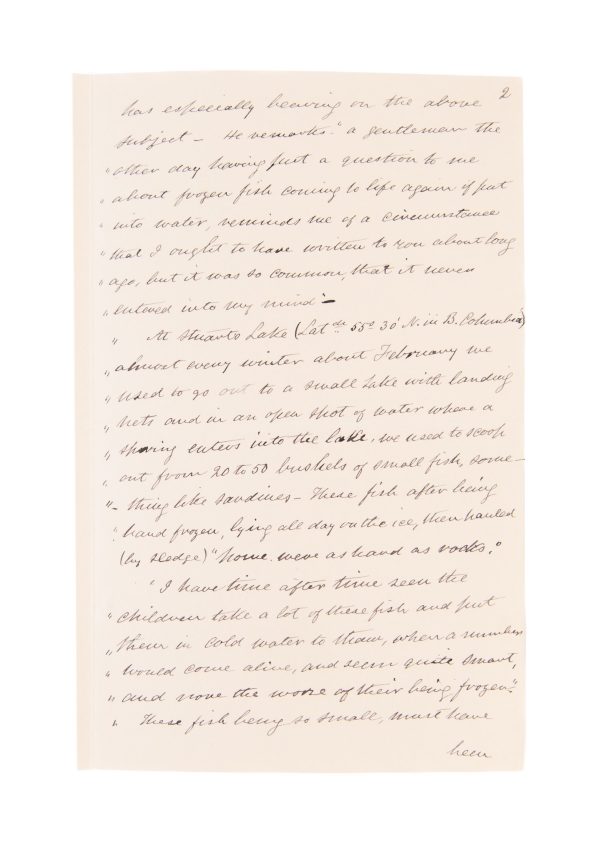 2
has especially bearing on the above
subject – He remarks. "a gentleman the
"other day having put a question to me
"about frozen fish coming to life again if put
"into water, reminds me of a circumstance
"that I ought to have written to you about long
"ago, but it was so common, that it never
"entered into my mind –
" At Stuarts Lake (Latde 55° 30' N. in B. Columbia)
"almost every winter about February we
"used to go out to a small Lake with landing
"nets and in an open spot of water where a
"spring enters into the lake, we used to scoop
"out from 20 to 50 bushels of small fish, some–
"–thing like sardines – These fish after being
"hard frozen, lying all day on the ice, then hauled
(by sledge) "home were as hard as rocks."
"I have time after time seen the
"children take a lot of these fish and put
"them in cold water to thaw, when a number
"would come alive, and seem quite smart,
"and none the worse of their being frozen."
" These fish being so small, must have
been